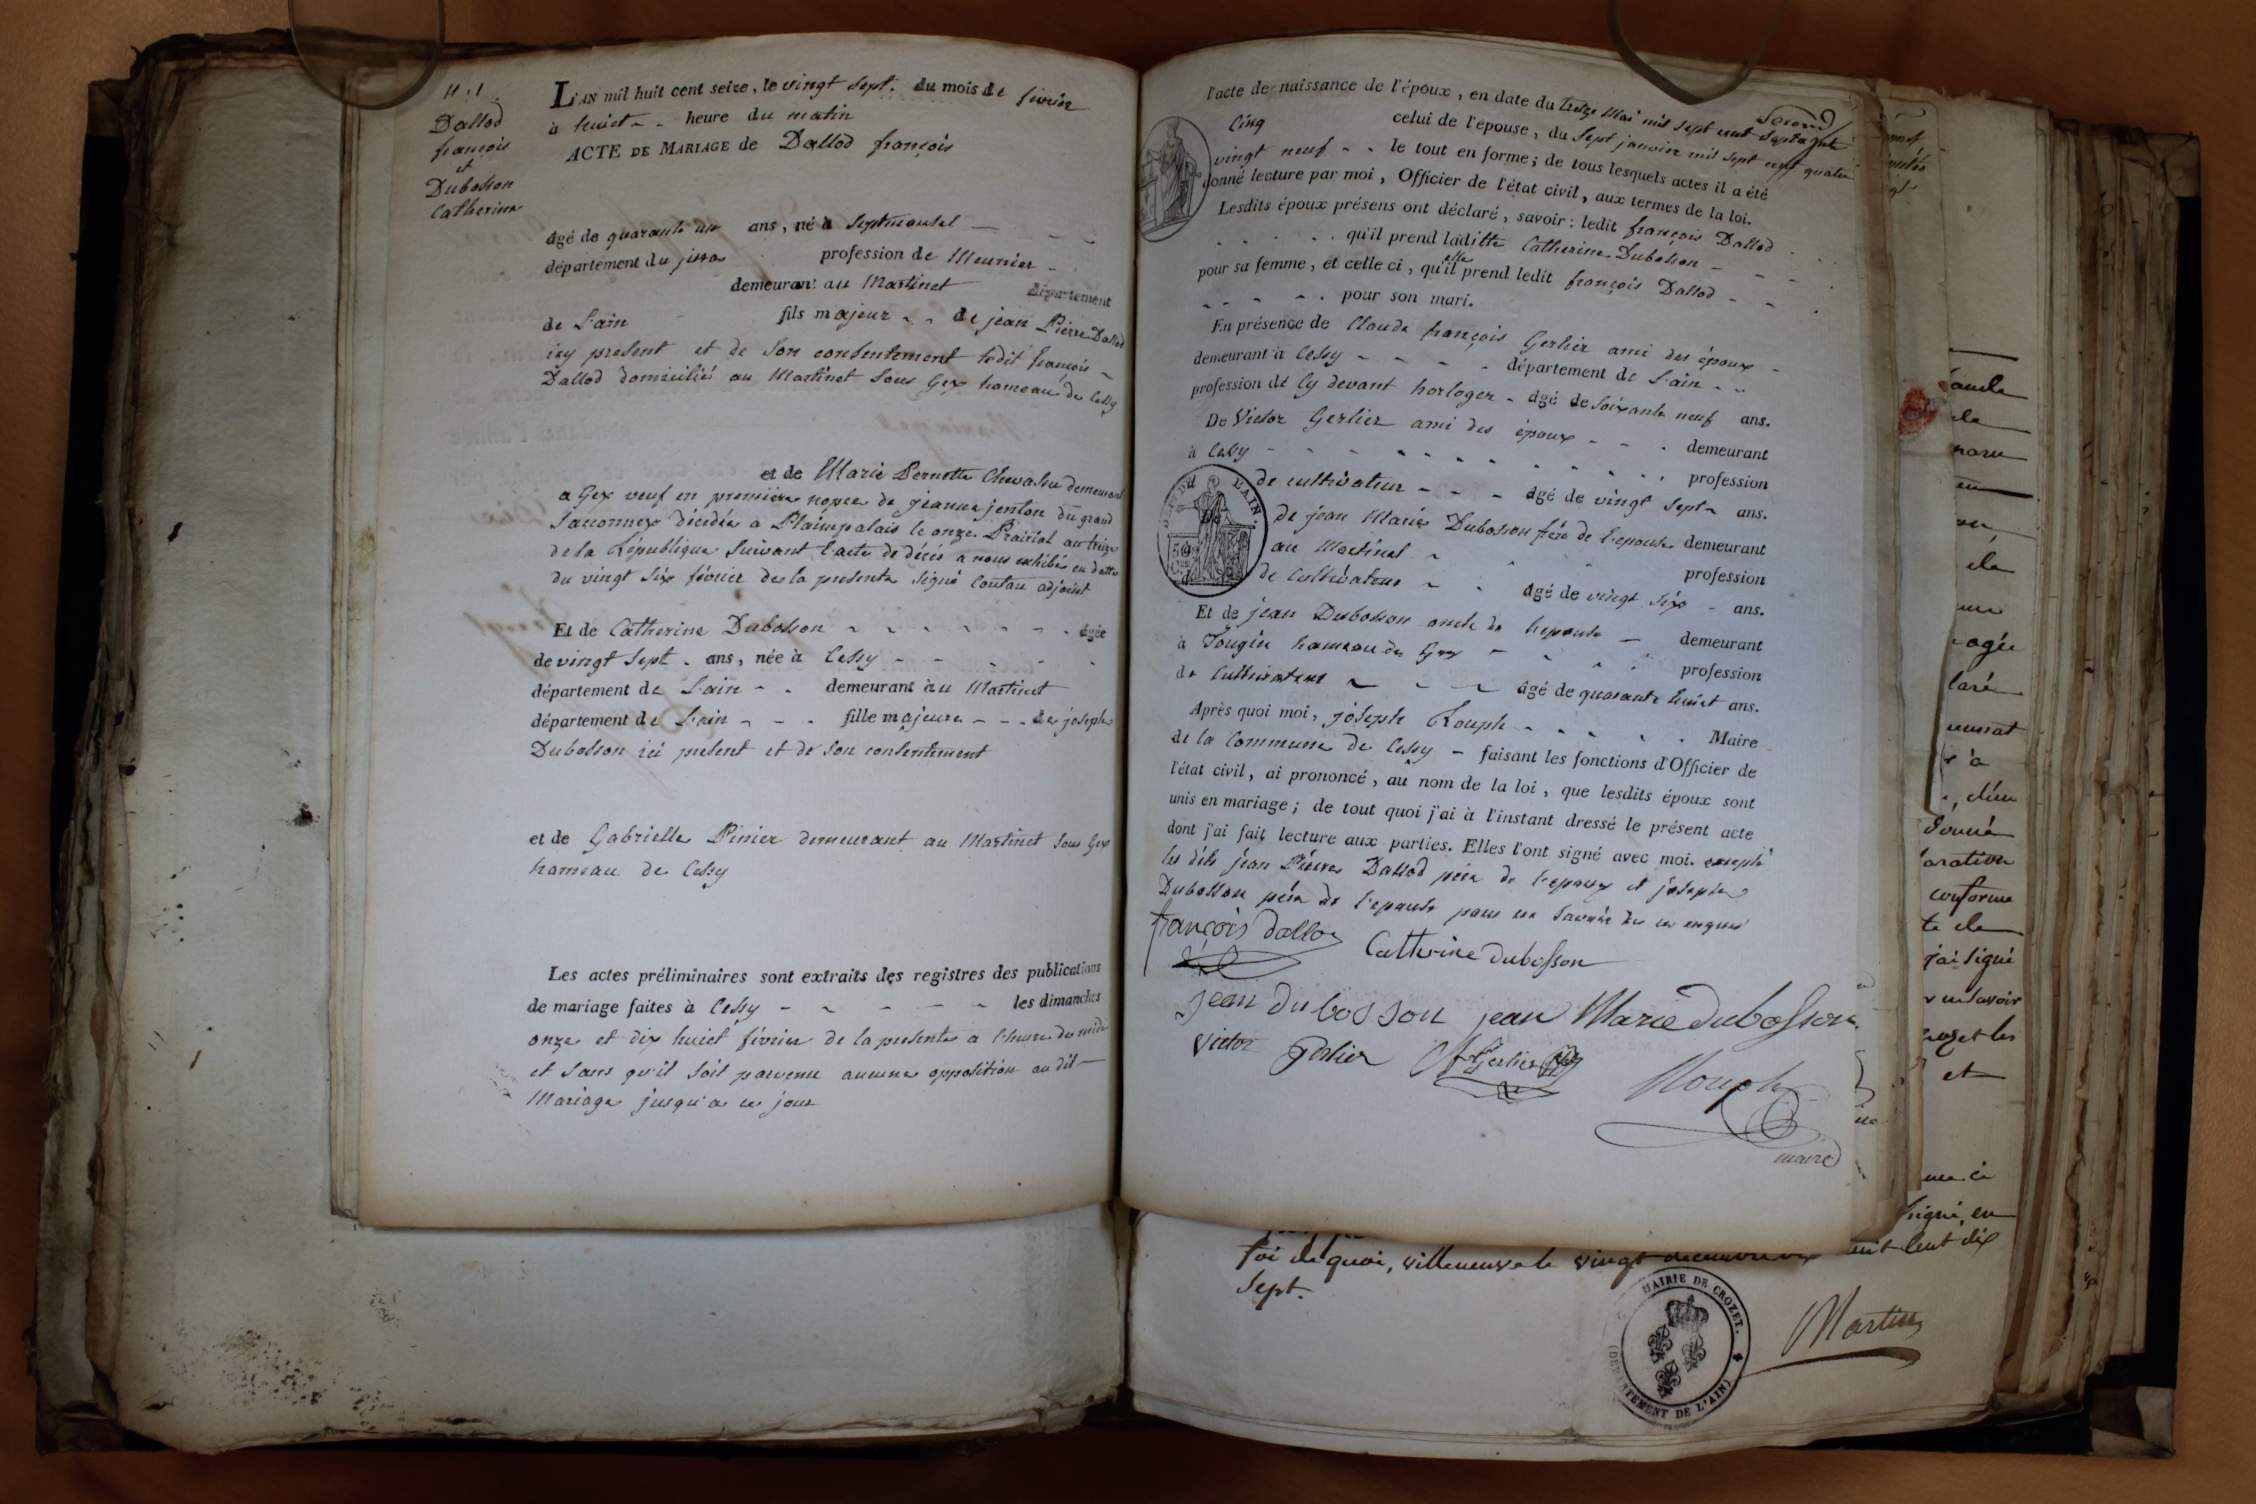 N. 1
Dallod
françois
et
Dubosson
Catherine
L'AN mil huit cent seize, le vingt sept. du mois de février
à huict heure du matin
ACTE DE MARIAGE de Dallod françois
âgé de quarante un ans, né à Septmoncel
département du jura profession de Meunier
demeurant au Martinet département
de l'ain fils majeur de jean Pierre Dallod
icy present et de son consentement ledit françois
Dallod domicilié au Martinet sous Gex hameau de Cessy
et de Marie Pernette Chevassu demeurant
a Gex veuf en première nopce de jeanne jenton du grand
Saconnex décédée a Plainpalais le onze Prairial an treize
de la République suivant l'acte de décès a nous exhibée en datte
du vingt six février de la presente signé Coutau adjoint
Et de Catherine Dubosson âgée
de vingt sept ans, née à Cessy
département de l'ain demeurant au Martinet
département de l'ain fille majeure de joseph
Dubosson ici present et de son consentement
et de Gabrielle Pinier demeurant au Martinet sous Gex
hameau de Cessy
Les actes préliminaires sont extraits des registres des publications
de mariage faites à Cessy les dimanches
onze et dix huict février de la presente a l'heure de midi
et sans qu'il soit parvenu aucune opposition au dit
Mariage jusqu'a ce jour
l'acte de naissance de l'époux, en date du treize Mai mil sept cent septante
cinq celui de l'epouse, du sept janvier mil sept cent quatre
vingt neuf le tout en forme; de tous lesquels actes il a été
donné lecture par moi, Officier de l'état civil, aux termes de la loi.
Lesdits époux présens ont déclaré, savoir: ledit françois Dallod
qu'il prend laditte Catherine Dubosson
pour sa femme, et celle ci, qu'elle prend ledit françois Dallod
pour son mari.
En présence de Claude françois Gerlier ami des époux
demeurant à Cessy département de l'ain
profession de cy devant horloger âgé de soixante neuf ans.
De Victor Gerlier ami des époux demeurant
à Cessy profession
de cultivateur âgé de vingt sept ans.
De jean Marie Dubosson frère de l'epouse demeurant
au Martinet profession
de cultivateur âgé de vingt six ans.
Et de jean Dubosson oncle de l'epouse demeurant
à Tougin hameau de Gex profession
de cultivateur âgé de quarante huict ans.
Après quoi moi, joseph Rouph Maire
de la Commune de Cessy faisant les fonctions d'Officier de
l'état civil, ai prononcé, au nom de la loi, que lesdits époux sont
unis en mariage; de tout quoi j'ai à l'instant dressé le présent acte
dont j'ai fait lecture aux parties. Elles l'ont signé avec moi. excepté
les dits jean Pierre Dallod père de l'epoux et joseph
Dubosson père de l'epouse pour ne savoir de ce enquis
DEP.T DE L'AIN.
50
françois dallod
Catherine dubosson
jean dubosson jean Marie dubosson
Victor Gerlier Gerlier
Rouph
maire
foi de quoi, villeneuve le vingt decembre mil huit cent dix
sept.
MAIRIE DE CROZET.
(DÉPARTEMENT DE L'AIN)
Martin